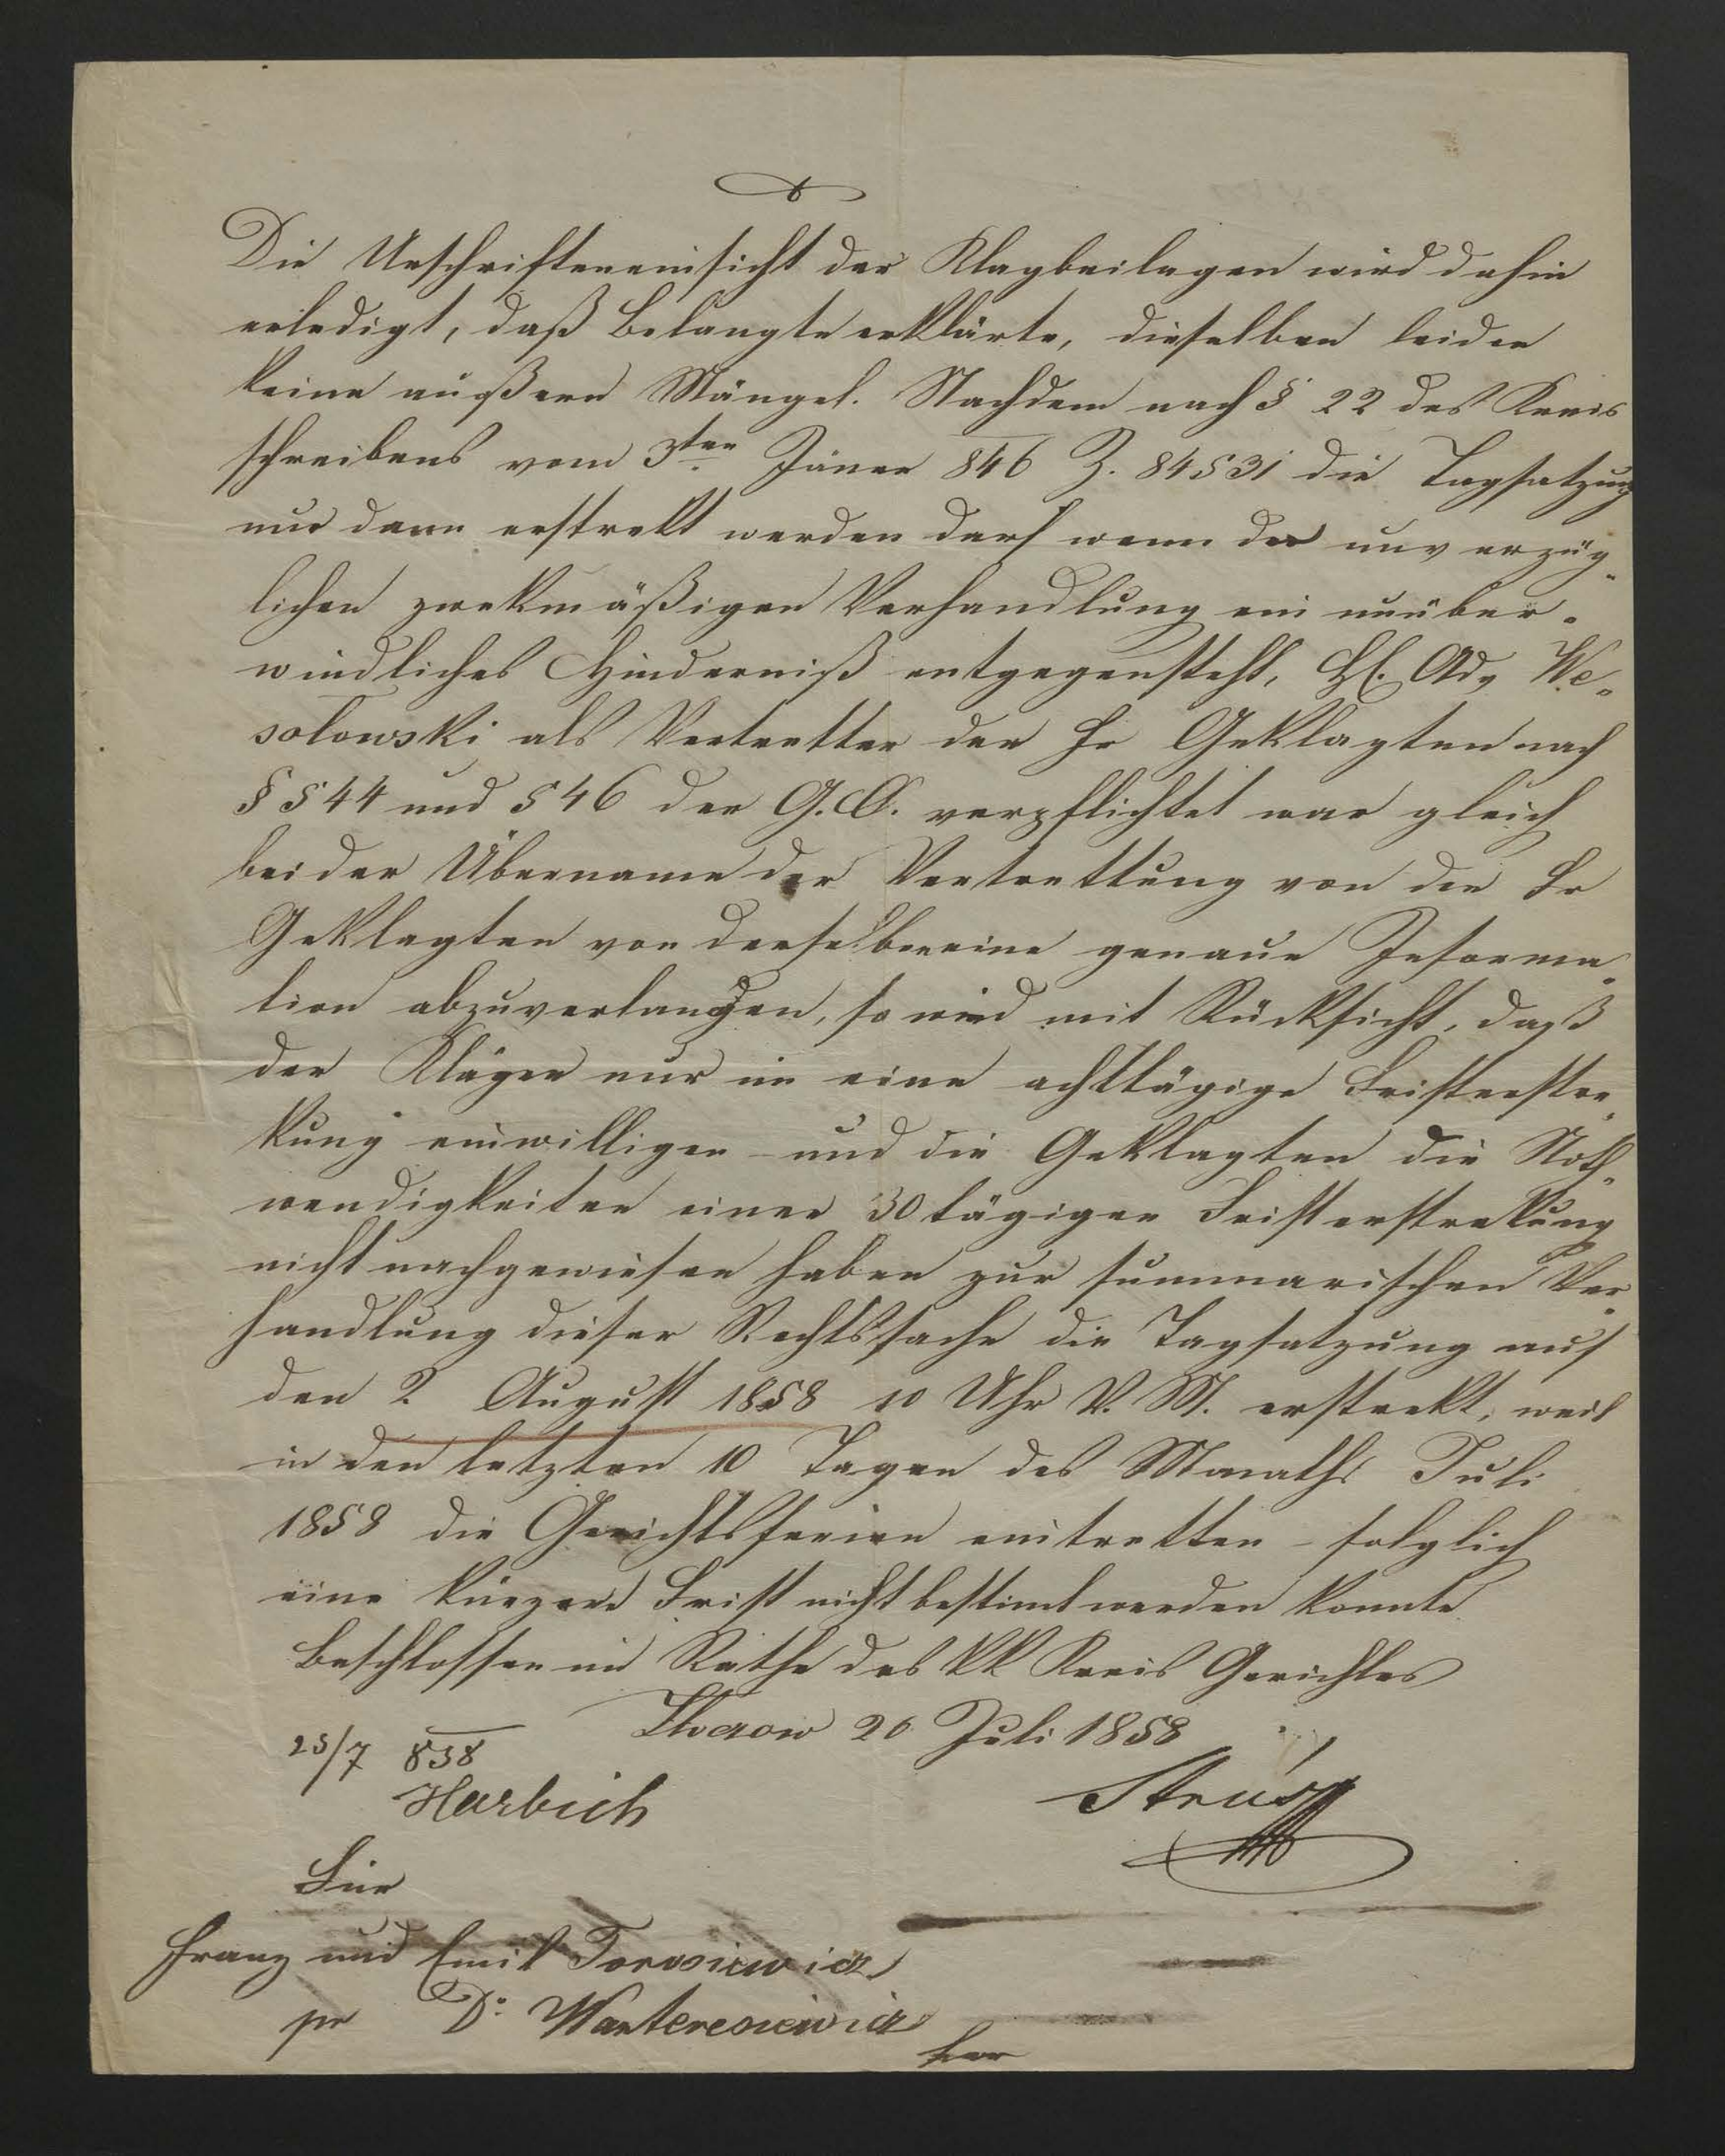 Die Urschrifteneinsicht der Klagbeilagen wird dahin
erledigt, daß Belangte erklärte, dieselben leiden
keine äußern Mängel. Nachdem nach § 22 des Kreis
schreibens vom 3ten Jäner 846 Z. 84531 die Tagsatzung
nur dann erstrekt werden darf wenn der unverzüg-
lichen zwekmäßigen Verhandlung ein unüber-
windliches Hinderniß entgegensteht, H. Adv We-
solowski als Vertretter der Hr Geklagten nach
§ 544 und 546 der G.O. verpflichtet war gleich
bei der Übername der Vertrettung von den Hr
Geklagten von denselben eine genaue Informa-
tion abzuverlangen, so wird mit Rücksicht, daß
der Kläger nur in eine achttägige Fristerstre-
kung einwilligen – und die Geklagten die Noth-
wendigkeiten einer 30 tägigen Fristerstrekung
nicht nachgewiesen haben zur summarischen Ver-
handlung dieser Rechtssache die Tagsatzung auf
den 2. August 1858 10 Uhr V. M. erstrekt, weil
in den letzten 10 Tagen des Monaths Juli
1858 die Gerichtsferien eintretten – folglich
eine kürzere Frist nicht bestimt werden konnte
Beschlossen im Rathe des kk Kreis Gerichtes
Zloczow 20 Juli 1858
25/7 858
Harbich
Für
Franz und Emil Torosiewicz
pr Dr. Warteresiewicz